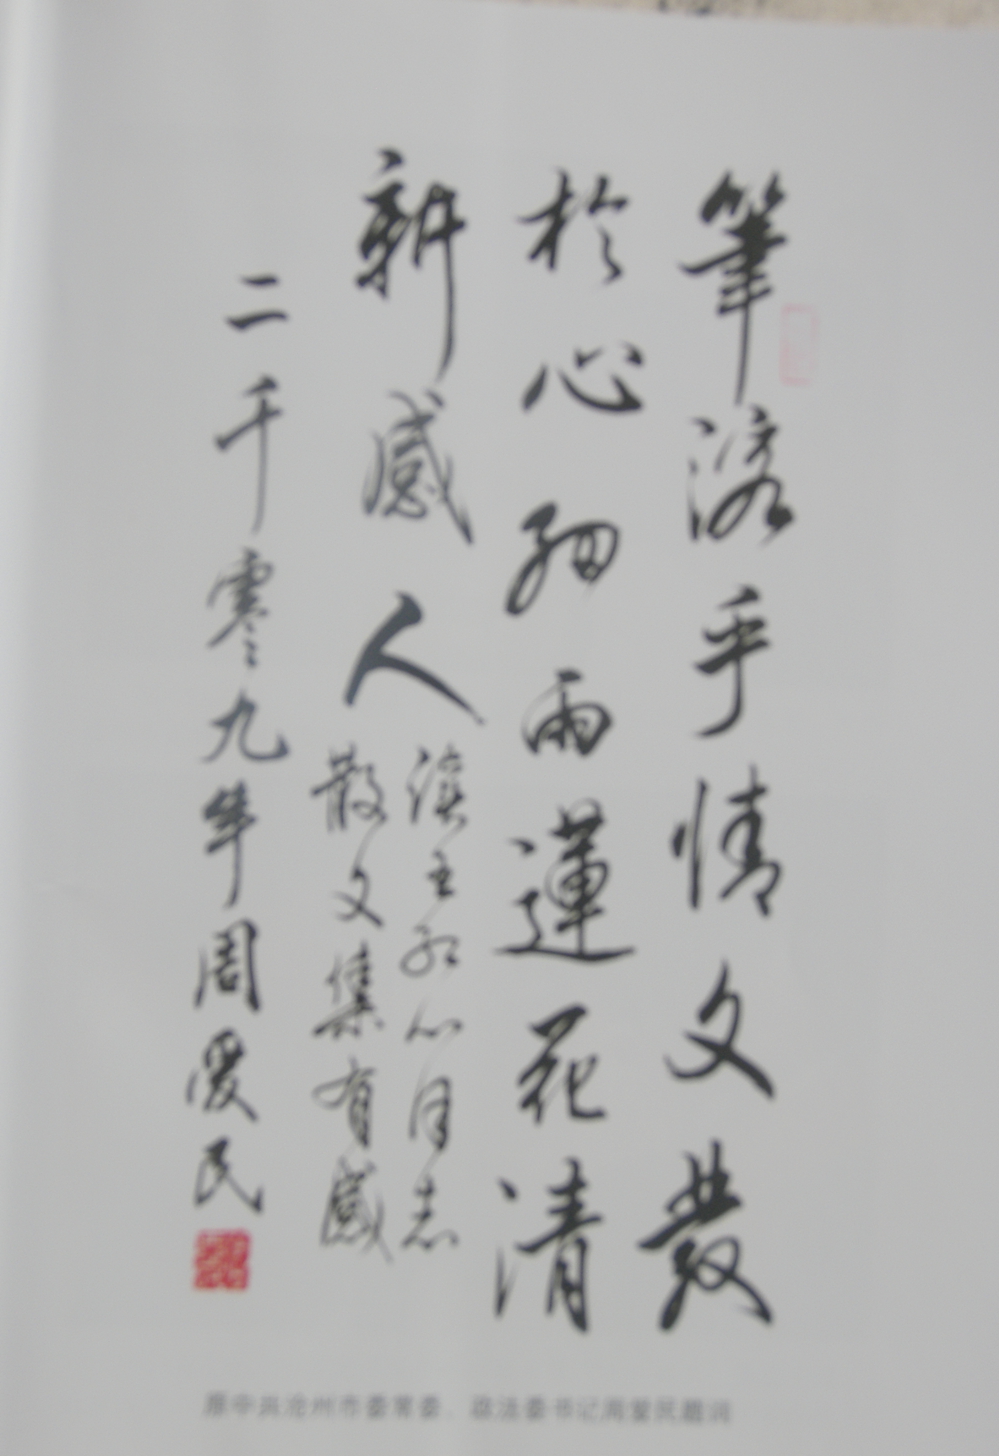 筆落乎情文發
於心細雨蓮花清
新感人
讀王
散文集有感
二千零九年周愛民
原中共沧州市委常委、政法委书记周爱民题词